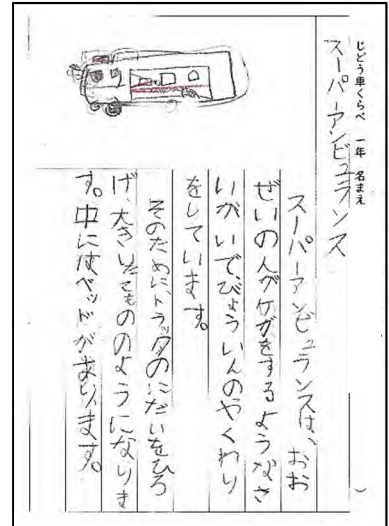 じどう車くらべ 一年 名まえ（ ）
スーパーアンビュランス
スーパーアンビュランスは、おお
ぜいの人がケガをするようなさ
いがいで、びょういんのやくわり
をしています。
そのために、トラックのにだいをひろ
げ、大きいたてもののようになりま
す。中にはベッドがあります。